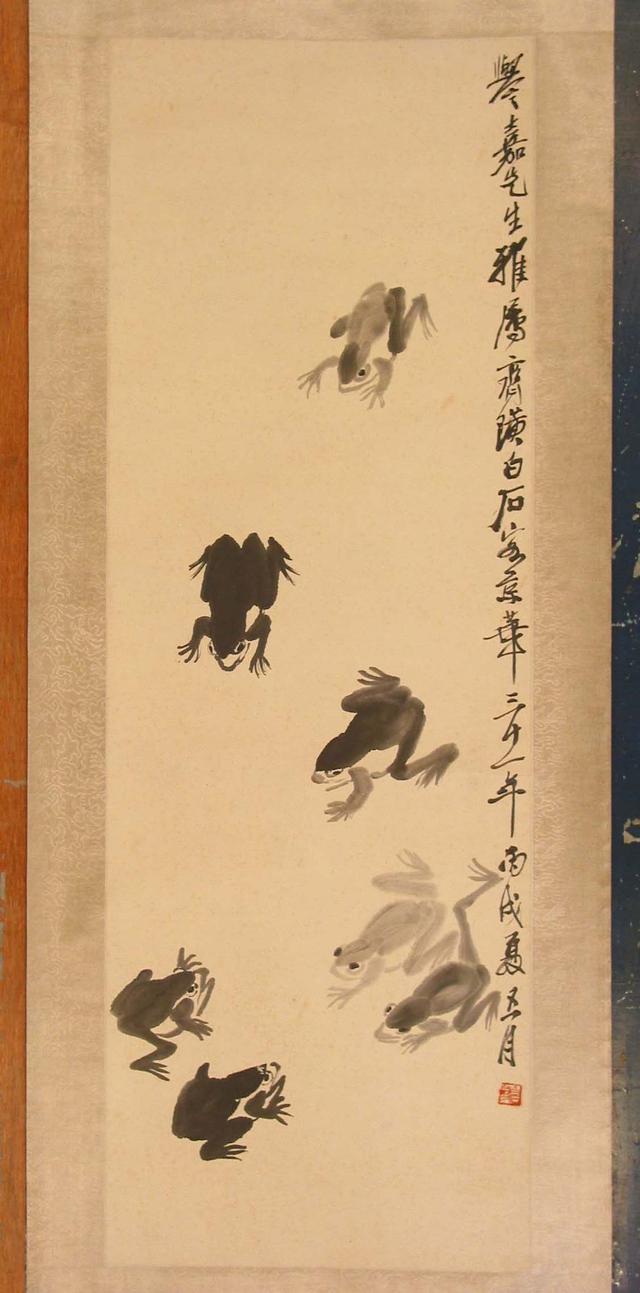 嘉先生雅屬齊璜白石客京華三十一年丙戌夏五月